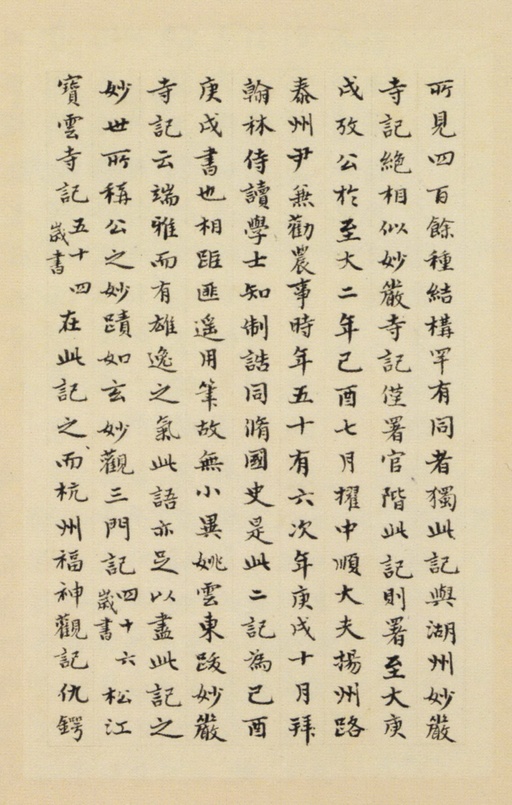 所見四百餘種結構罕有同者獨此記與湖州妙嚴
寺記絕相似妙嚴寺記僅署官階此記則署至大庚
戌攷公於至大二年己酉七月擢中順大夫揚州路
泰州尹兼勸農事時年五十有六次年庚戌十月拜
翰林侍讀學士知制誥同脩國史是此二記為己酉
庚戌書也相距匪遙用筆故無小異姚雲東跋妙嚴
寺記云端雅而有雄逸之氣此語亦足以盡此記之
妙世所稱公之妙蹟如玄妙觀三門記四十六歲書松江
寶雲寺記五十四歲書在此記之而杭州福神觀記仇鍔